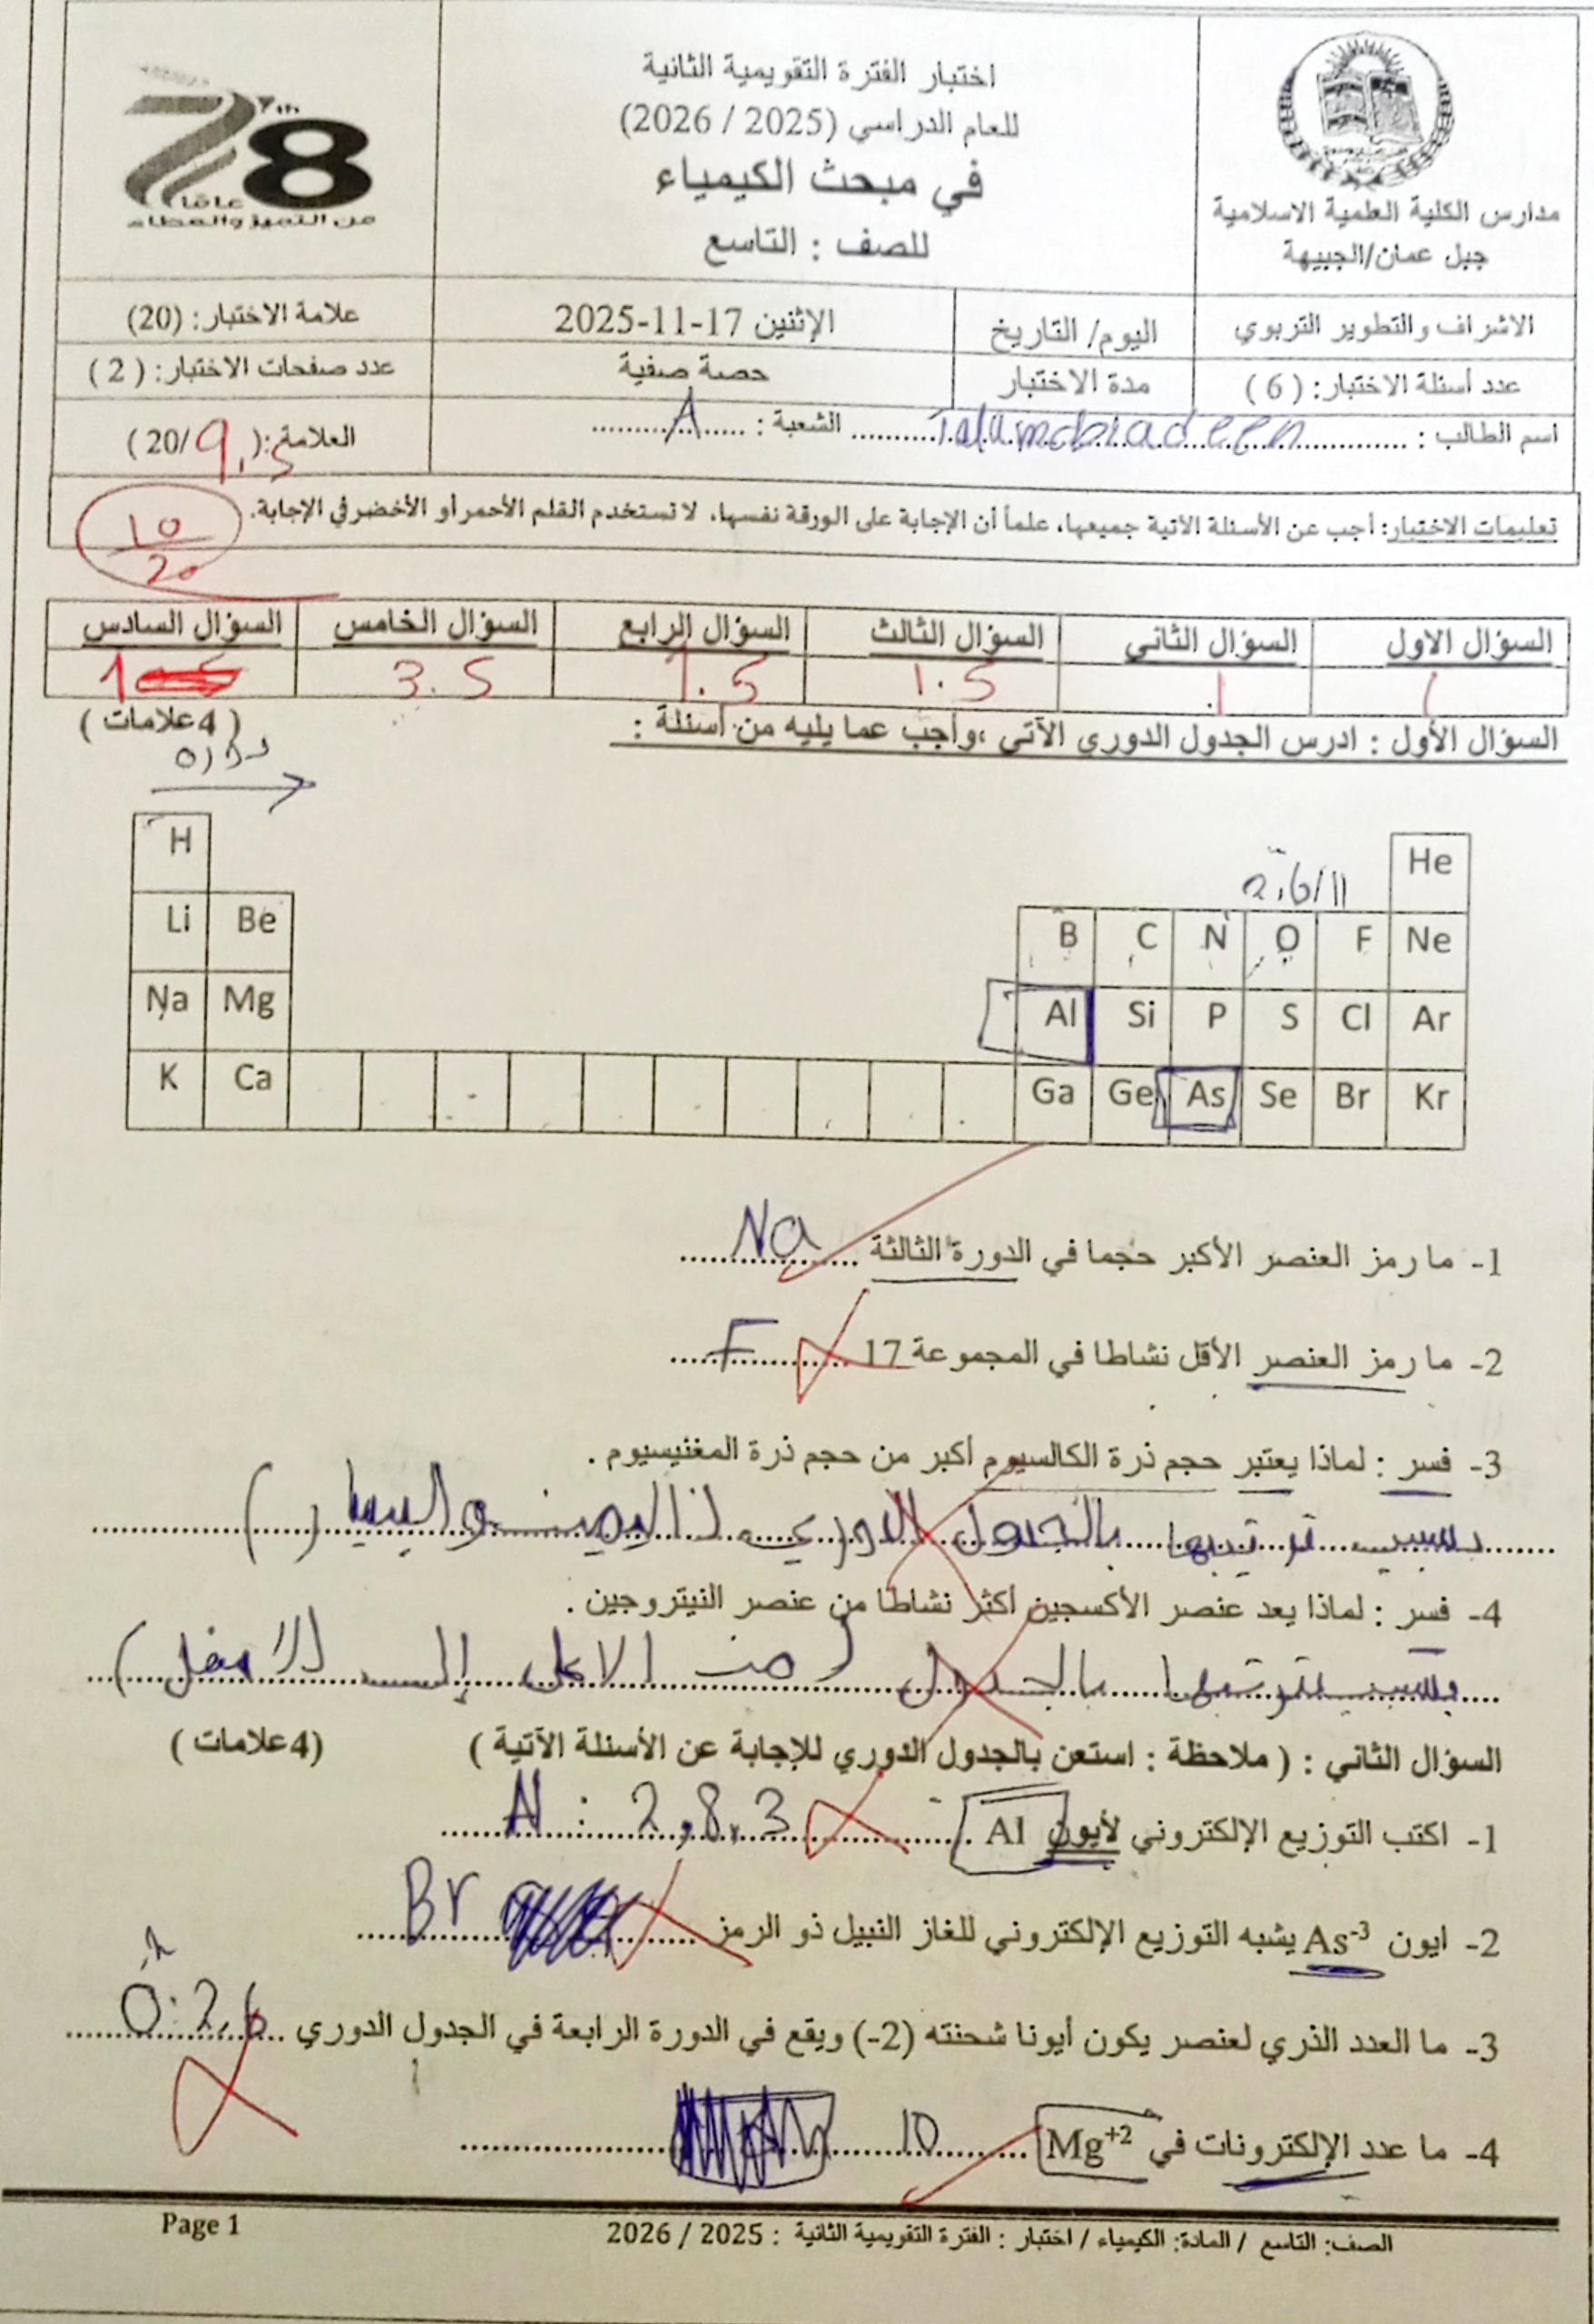 اختبار الفترة التقويمية الثانية
للعام الدراسي (2025 / 2026)
في مبحث الكيمياء
للصف : التاسع
مدارس الكلية العلمية الاسلامية
جبل عمان/الجبيهة
78
عاما
من التميز والعطاء
الاشراف والتطوير التربوي
اليوم/ التاريخ
الإثنين 17-11-2025
علامة الاختبار: (20)
عدد أسئلة الاختبار: ( 6 )
مدة الاختبار
حصة صفية
عدد صفحات الاختبار: ( 2 )
اسم الطالب : .......... الشعبة : A
العلامة: ( 9.5 /20 )
تعليمات الاختبار: أجب عن الأسئلة الآتية جميعها، علماً أن الإجابة على الورقة نفسها، لا تستخدم القلم الأحمر أو الأخضر في الإجابة.
10
20
السؤال الاول السؤال الثاني السؤال الثالث السؤال الرابع السؤال الخامس السؤال السادس
1 1 1.5 1.5 3.5 1
السؤال الأول : ادرس الجدول الدوري الآتي ،وأجب عما يليه من أسئلة : ( 4علامات )
H He
Li Be B C N O F Ne
Na Mg Al Si P S Cl Ar
K Ca Ga Ge As Se Br Kr
1- ما رمز العنصر الأكبر حجما في الدورة الثالثة ..... Na .....
2- ما رمز العنصر الأقل نشاطا في المجموعة 17 ..... F .....
3- فسر : لماذا يعتبر حجم ذرة الكالسيوم أكبر من حجم ذرة المغنيسيوم .
بسبب ترتيبها بالجدول الدوري اليمين واليسار )
4- فسر : لماذا يعد عنصر الأكسجين أكثر نشاطا من عنصر النيتروجين .
بسبب ترتيبها بالجدول ( من الاعلى إلى الاسفل )
السؤال الثاني : ( ملاحظة : استعن بالجدول الدوري للإجابة عن الأسئلة الآتية ) (4علامات )
1- اكتب التوزيع الإلكتروني لأيون Al ..... Al : 2,8,3 .....
2- ايون As⁻³ يشبه التوزيع الإلكتروني للغاز النبيل ذو الرمز ..... Br .....
3- ما العدد الذري لعنصر يكون أيونا شحنته (2-) ويقع في الدورة الرابعة في الجدول الدوري ..... O: 2,6 .....
4- ما عدد الإلكترونات في Mg⁺² ..... 10 .....
الصف: التاسع / المادة: الكيمياء / اختبار : الفترة التقويمية الثانية : 2025 / 2026
Page 1